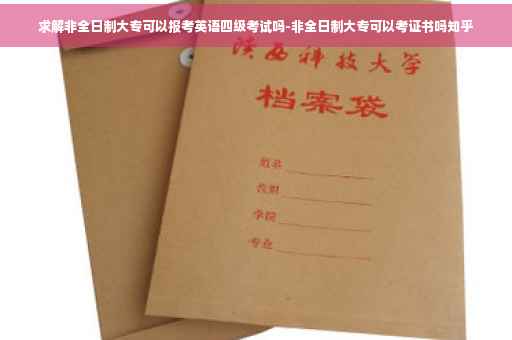 求解非全日制大专可以报考英语四级考试吗-非全日制大专可以考证书吗知乎
陕西科技大学
档案袋
姓名
学院
专业